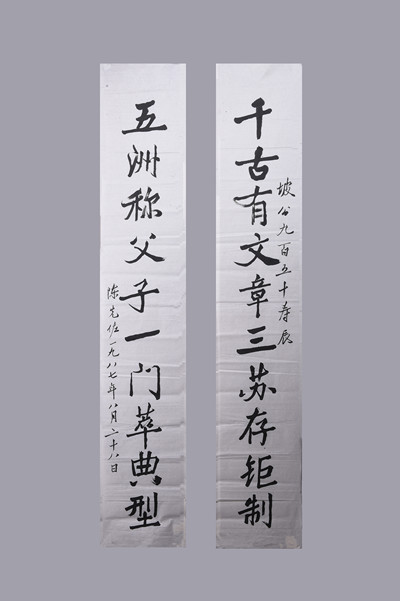 千古有文章三苏存钜制
坡公九百五十寿辰
五洲称父子一门萃典型
陈克佐一九八七年八月二十八日